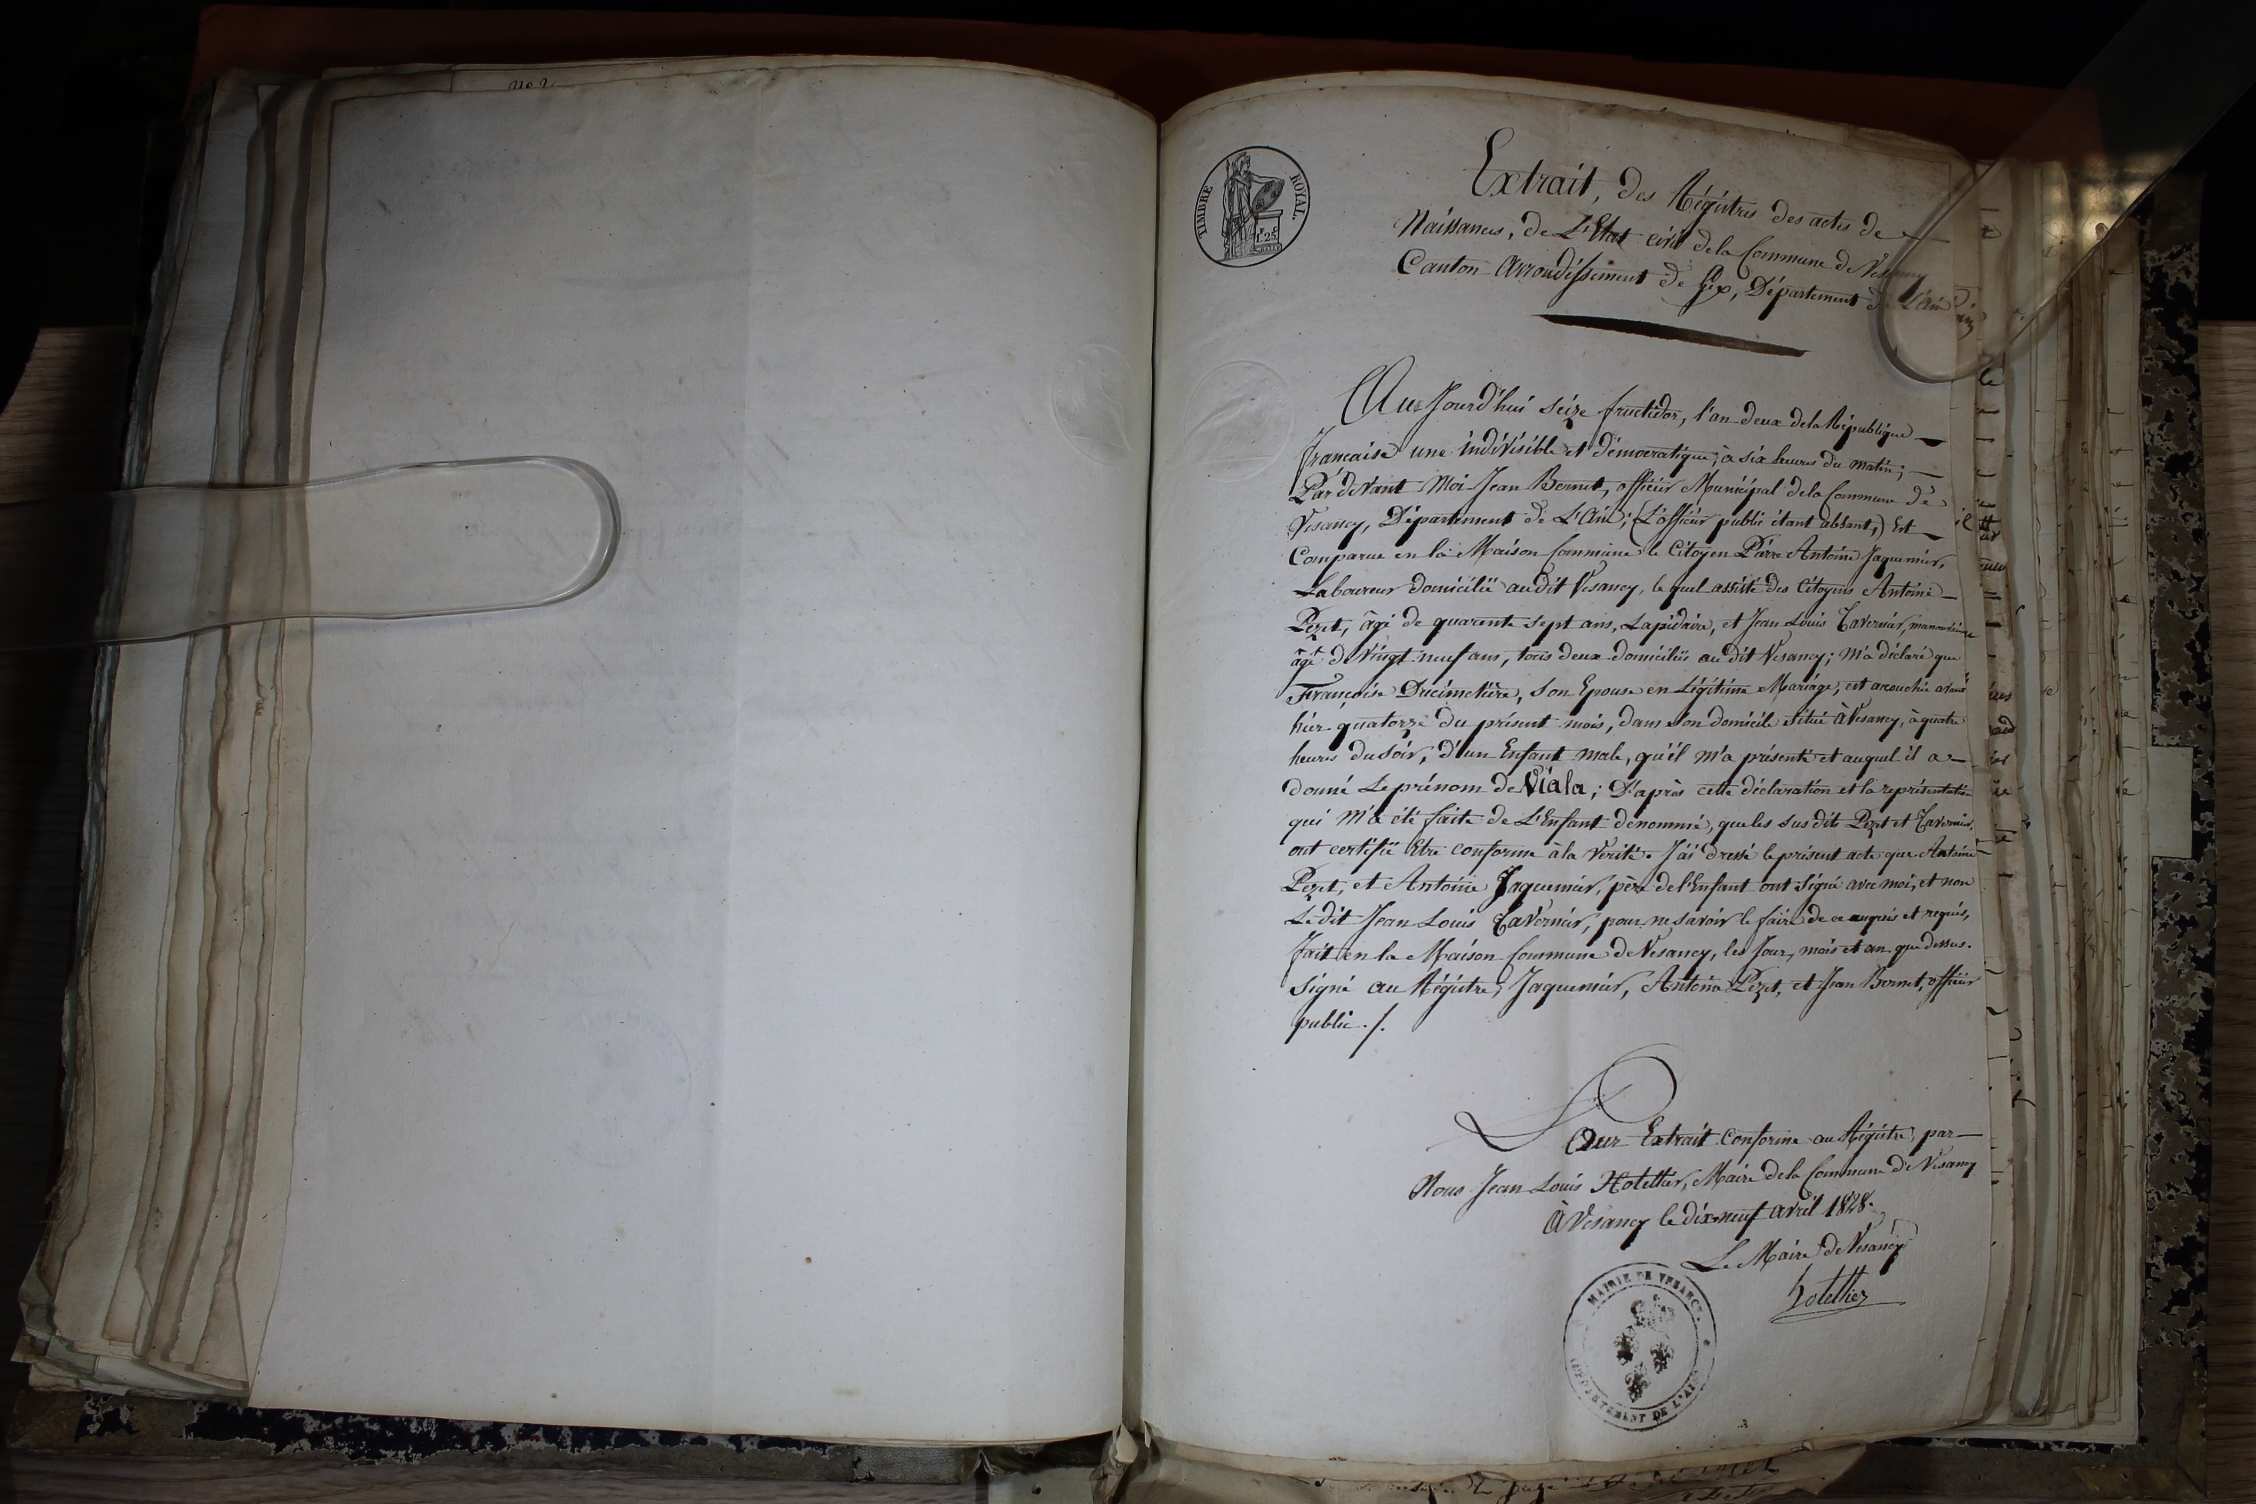 No 2.
TIMBRE ROYAL.
1f. 25c
Extrait, des Régistres des actes de
Naissances, de L'Etat civil de la Commune de Vesancy
Canton Arrondissement de Gex, Département de L'Ain
Au Jourd'hui seize fructidor, l'an deux de la République
française une indivisible et démocratique; à six heures du matin;
Par devant Moi Jean Bernet, officier Municipal de la Commune de
Vesancy, Département de L'Ain; (L'officier public étant absent,) Est
Comparue en la Maison Commune le Citoyen Pière Antoine Jaquemier,
Laboureur domicilié au dit Vesancy, le quel assisté des Citoyens Antoine
Pezet, âgé de quarente sept ans, Lapidaire, et Jean Louis Tavernier, manouvrier
âgé de Vingt neuf ans, tous deux domiciliés au dit Vesancy; M'a déclaré que
Françoise Ducimetière, son Epouse en Légitime Mariage, est acouchée avant
hier quatorze du présent mois, dans son domicile situé à Vesancy, à quatre
heures du soir, d'un Enfant male, qu'il m'a présenté et auquel il a
donné Le prénom de Viala; D'après cette déclaration et la représentation
qui M'a été faite de L'Enfant denommé, que les sus dits Pezet et Tavernier,
ont certifié Etre conforme à la Verité. J'ai dressé le présent acte que Antoine
Pezet, et Antoine Jaquemier, père de l'Enfant ont signé avec moi, et non
Le dit Jean Louis Tavernier, pour ne savoir le faire de ce enquis et requis,
fait en la Maison Commune de Vesancy, les Jour, mois et an que dessus.
Signé au Régistre, Jaquemier, Antoine Pezet, et Jean Bernet, officier
public ./.
Pour Extrait conforme au Régistre, par
Nous Jean Louis Hotellier, Maire de la Commune de Vesancy
à Vesancy le dix neuf avril 1828.
Le Maire de Vesancy
hotellier
MAIRIE DE VESANCY
DEPARTEMENT DE L'AIN